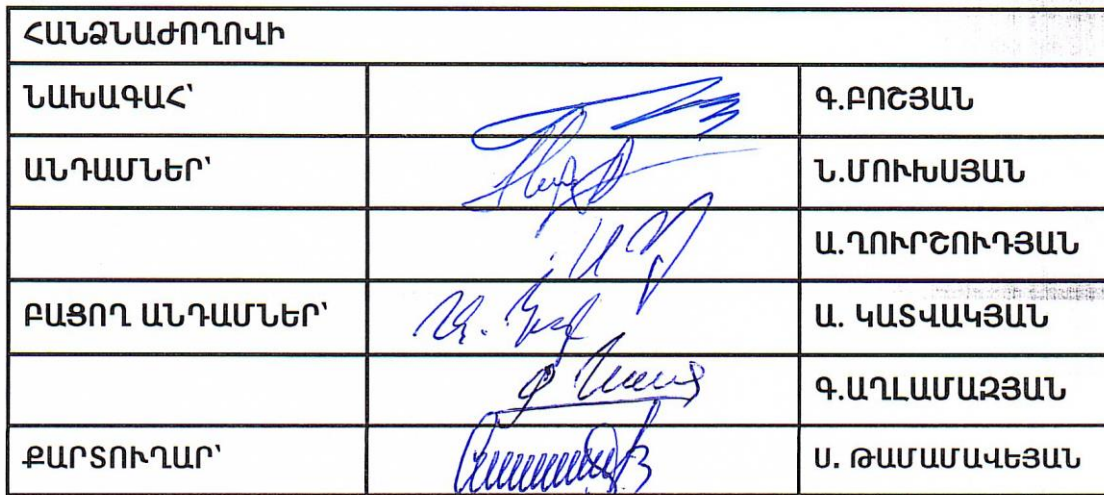 ՀԱՆՁՆԱԺՈՂՈՎԻ
ՆԱԽԱԳԱՀ՝ Գ.ԲՈՇՅԱՆ
ԱՆԴԱՄՆԵՐ՝ Ն.ՄՈՒԽՍՅԱՆ
Ա.ՂՈՒՐՇՈՒԴՅԱՆ
ԲԱՑՈՂ ԱՆԴԱՄՆԵՐ՝ Ա. ԿԱՏՎԱԿՅԱՆ
Գ.ԱՂԼԱՄԱԶՅԱՆ
ՔԱՐՏՈՒՂԱՐ՝ Ս. ԹԱՄԱՄԱՎԵՅԱՆ